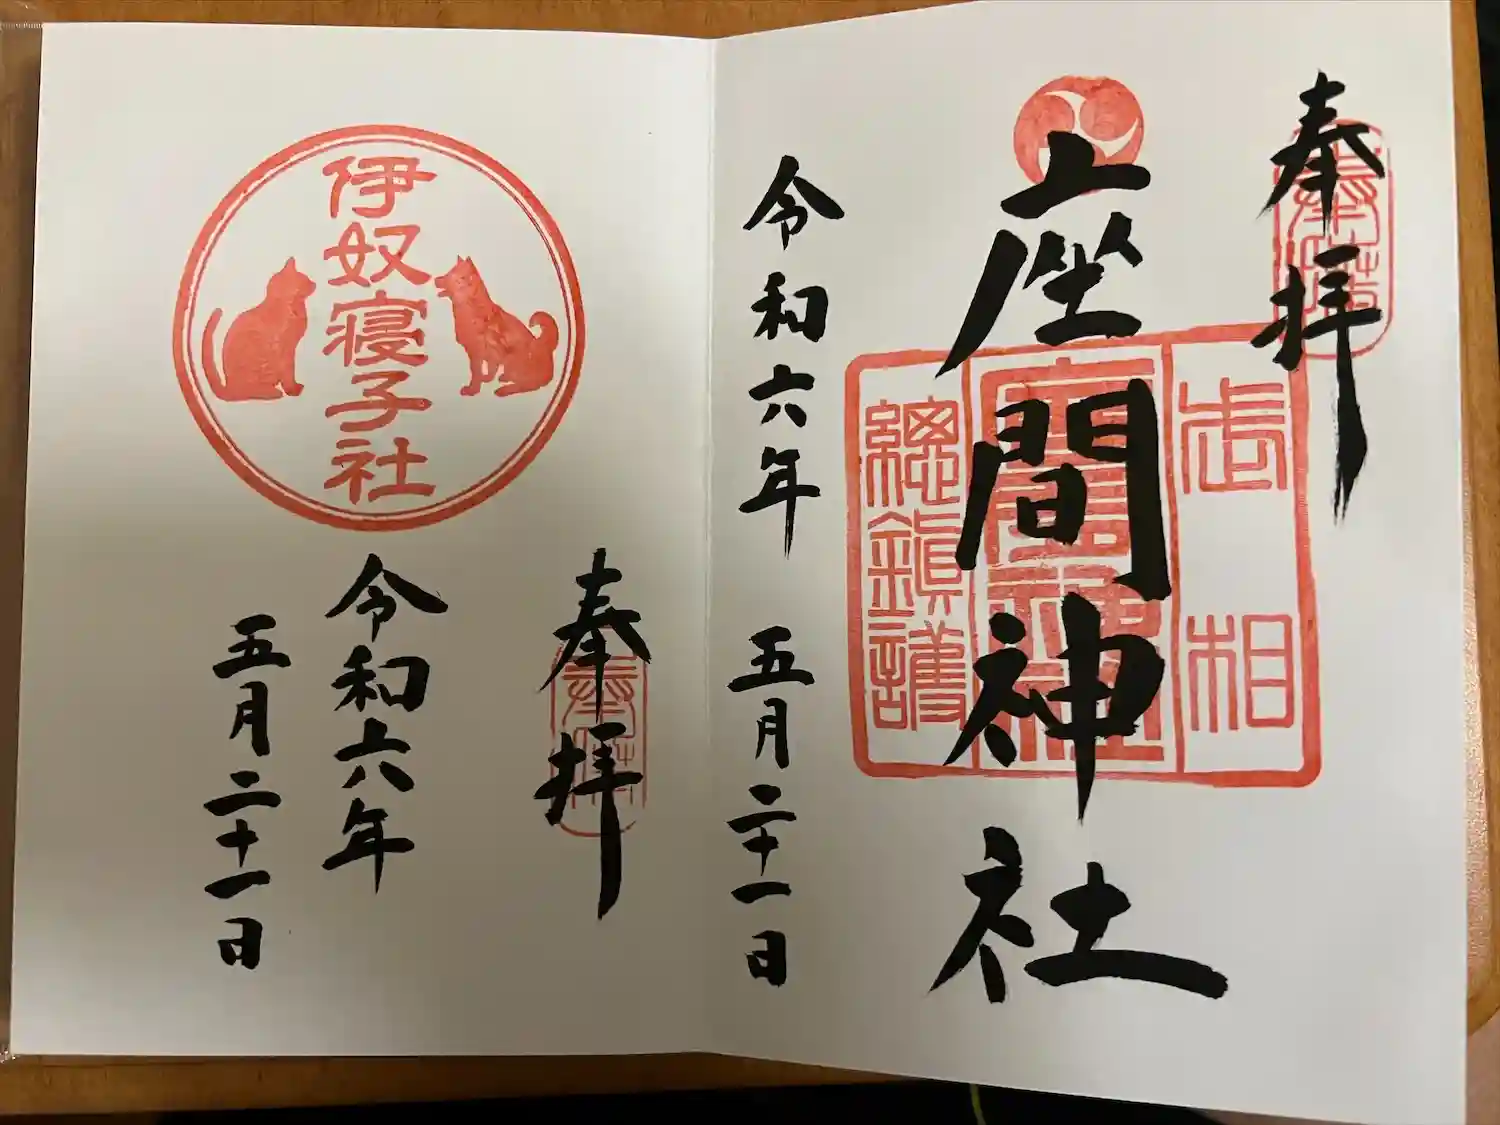 奉拝
武相
座間神社
總鎮護
令和六年 五月二十一日
伊奴寝子社
奉拝
令和六年
五月二十一日